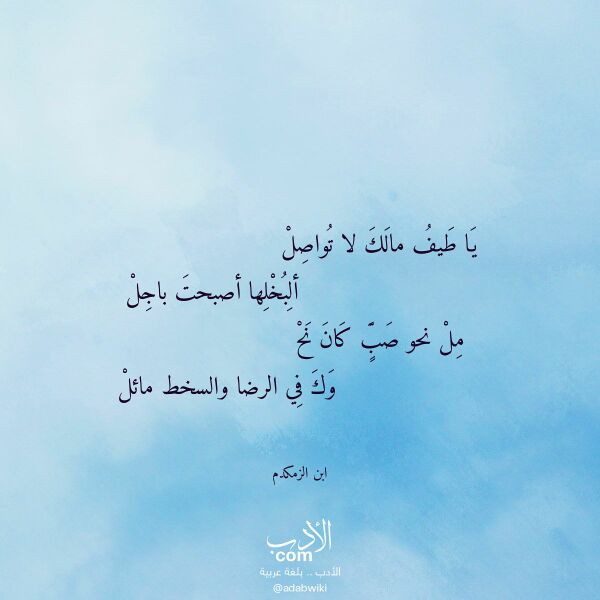 يَا طَيفُ مالَكَ لا تُواصِلْ
ألِبُخْلِها أصبحتَ باجِلْ
مِلْ نحو صَبٍّ كَانَ نَحْ
وَكَ فِي الرضا والسخط مائلْ
ابن الزمكدم
الأدب
com
الأدب .. بلغة عربية
@adabwiki